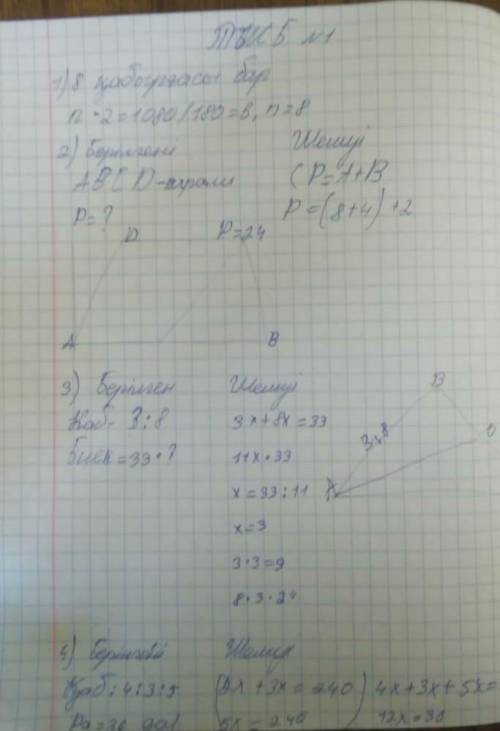 ТЖБ №1
1) 8 қабырғасы бар
n - 2 = 1080/180 = 6, n = 8
2) Берілгені
Шешуі
ABCD -
(P = A + B
P = ?
P = (8+4) + 2
D
P = 24
A
B
3) Берілген
Шешуі
Қаб - 3:8
3x + 8x = 33
= 33 ?
11x = 33
x = 33 : 11
x = 3
3 · 3 = 9
8 · 3 =
B
3,8
A
4) Берілгені
Шешуі
Қаб: 4:3:5
+ 3x = 240)
4x + 3x + 5x =
5x = 240
12x = 36